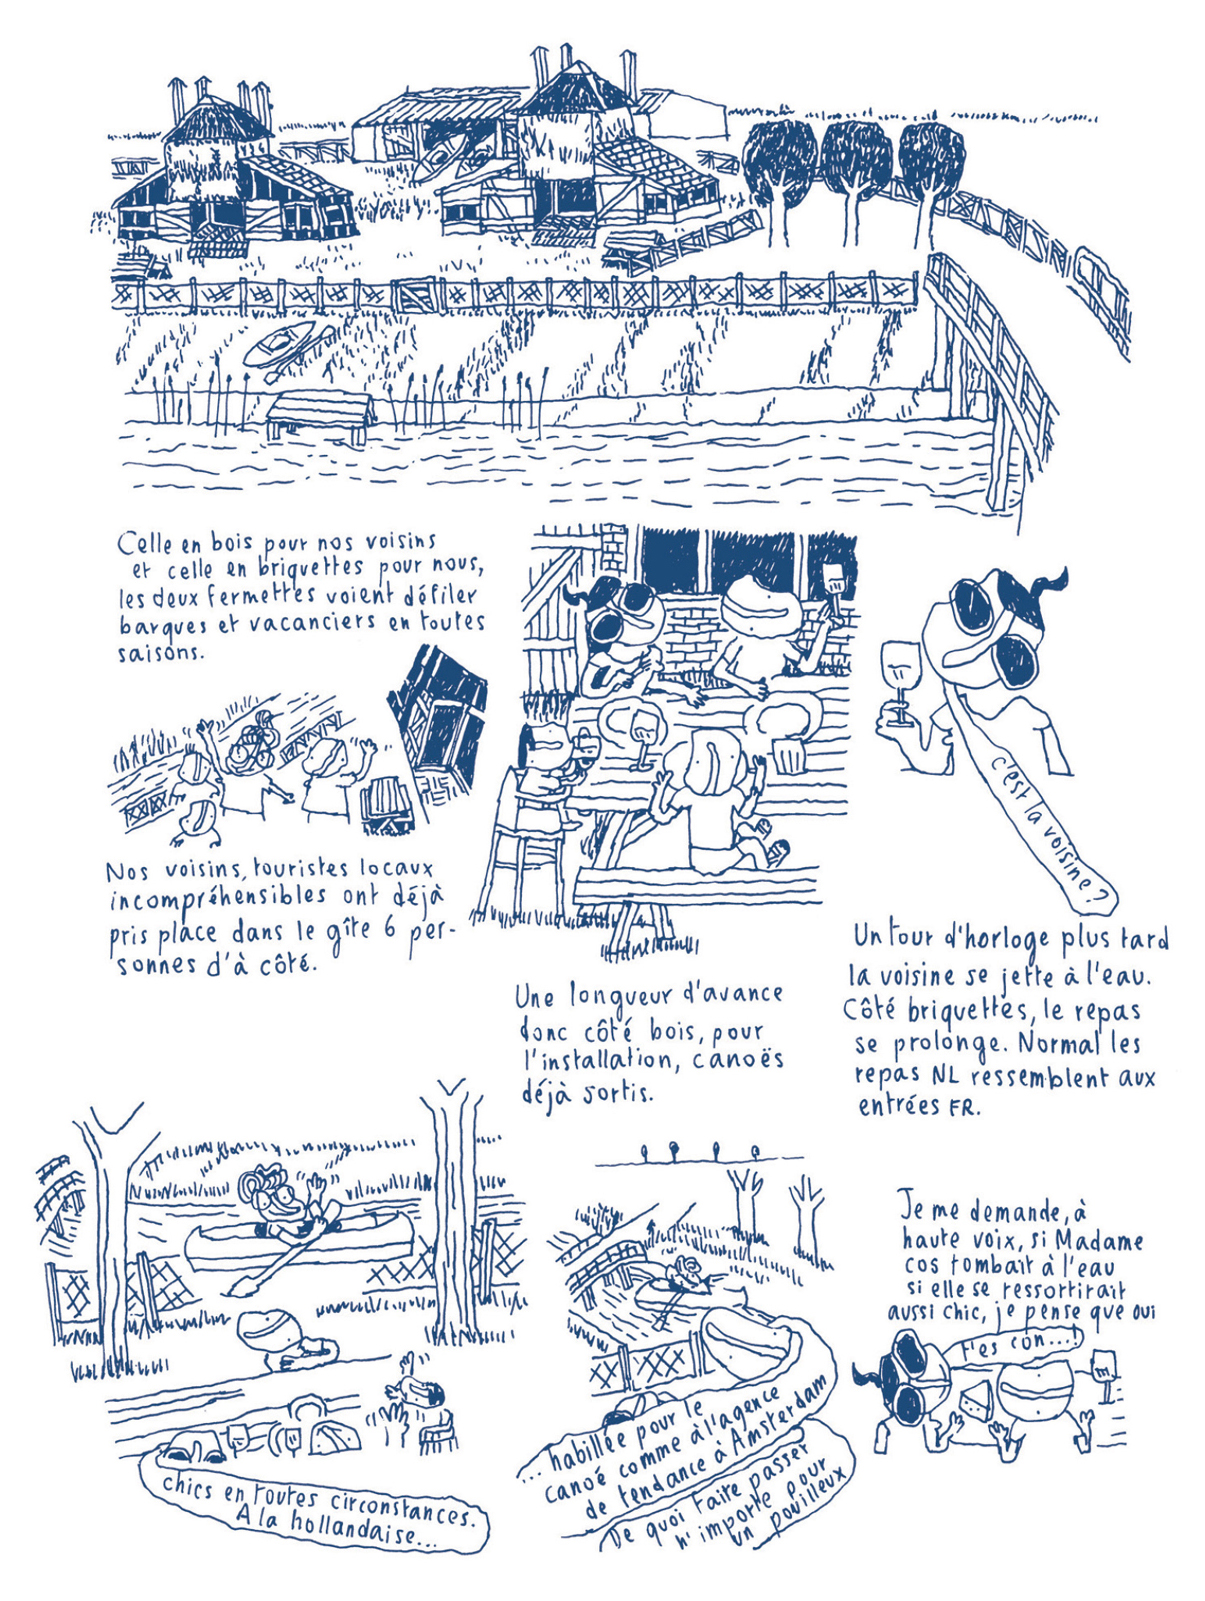 Celle en bois pour nos voisins
et celle en briquettes pour nous,
les deux fermettes voient défiler
barques et vacanciers en toutes
saisons.
Nos voisins, touristes locaux
incompréhensibles ont déjà
pris place dans le gîte 6 per-
sonnes d'à côté.
Une longueur d'avance
donc côté bois, pour
l'installation, canoës
déjà sortis.
c'est la voisine?
Un tour d'horloge plus tard
la voisine se jette à l'eau.
Côté briquettes, le repas
se prolonge. Normal les
repas NL ressemblent aux
entrées FR.
chics en toutes circonstances.
A la hollandaise...
... habillée pour le
canoé comme à l'agence
de tendance à Amsterdam
De quoi faire passer
n'importe pour
un pouilleux
Je me demande, à
haute voix, si Madame
cos tombait à l'eau
si elle se ressortirait
aussi chic, je pense que oui
t'es con...!